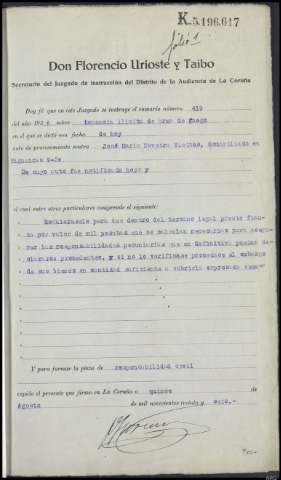 K.5.196.617
folio 1
Don Florencio Urioste y Taibo
Secretario del Juzgado de instrucción del Distrito de la Audiencia de La Coruña
Doy fé que en este Juzgado se instruye el sumario número 419
del año 193 6 sobre tenencia ilicita de arma de fuego
en el que se dictó con fecha de hoy
auto de procesamiento contra José Maria domiciliado en
De cuyo auto fue notificado hoy y
el cual entre otros particulares comprende el siguiente:
Requierasele para que dentro del termino legal preste fian-
za por valor de mil pesetas que se calculan necesarias para asegu-
rar las responsabilidades pecuniarias que en definitiva puedan de-
clararse procedentes, y si no lo verificase procedase al embargo
de sus bienes en cantidad suficiente a cubrir la expresada suma-
Y para formar la pieza de responsabilidad civil
expido el presente que firmo en La Coruña a quince de
Agosto de mil novecientos treinta y seis.-